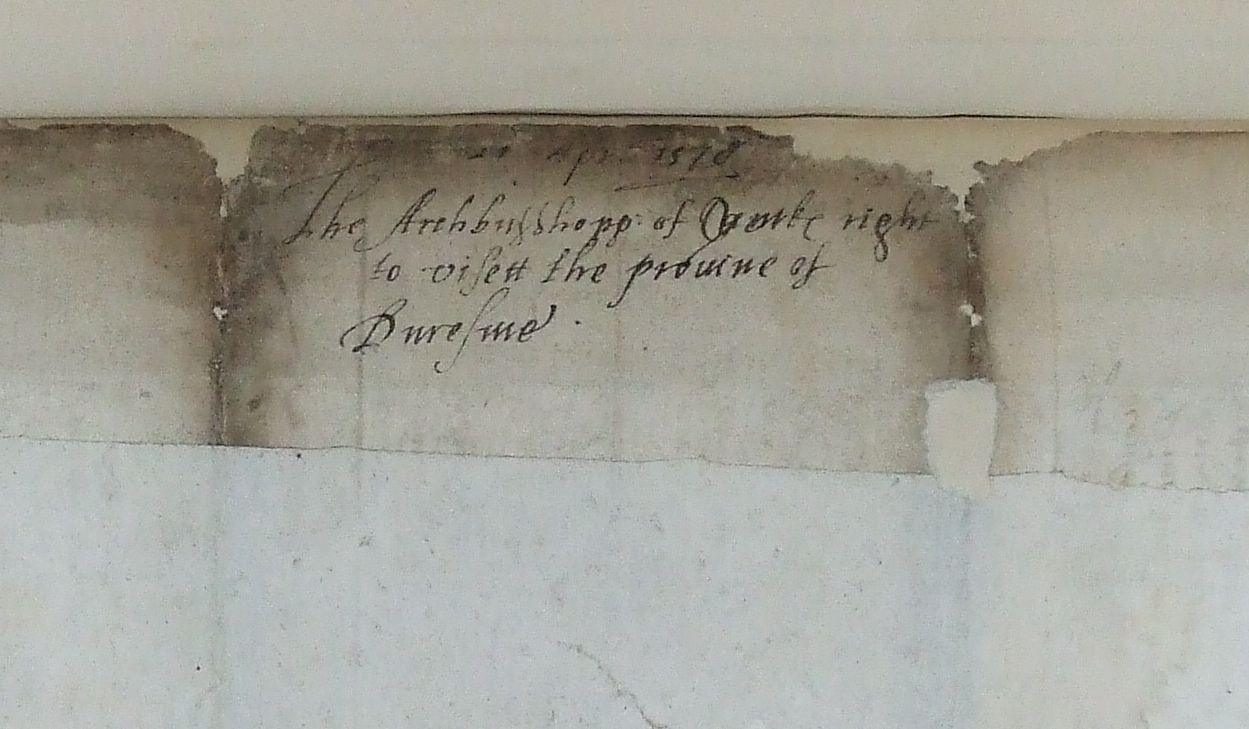 21 Apr. 1578
The Archbusshopp: of Yorke right
to visett the provine of
Duresme.